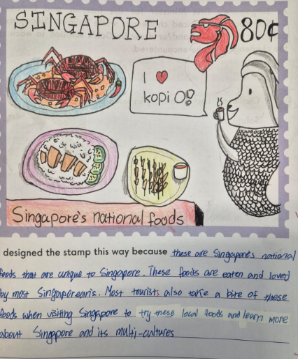 SINGAPORE 80¢
I ❤ kopi O!
Singapore's national foods
designed the stamp this way because these are Singapore's national
foods that are unique to Singapore. These foods are eaten and loved
by most Singaporeans. Most tourists also take a bite of these
foods when visiting Singapore to try these local foods and learn more
about Singapore and its multi-cultures